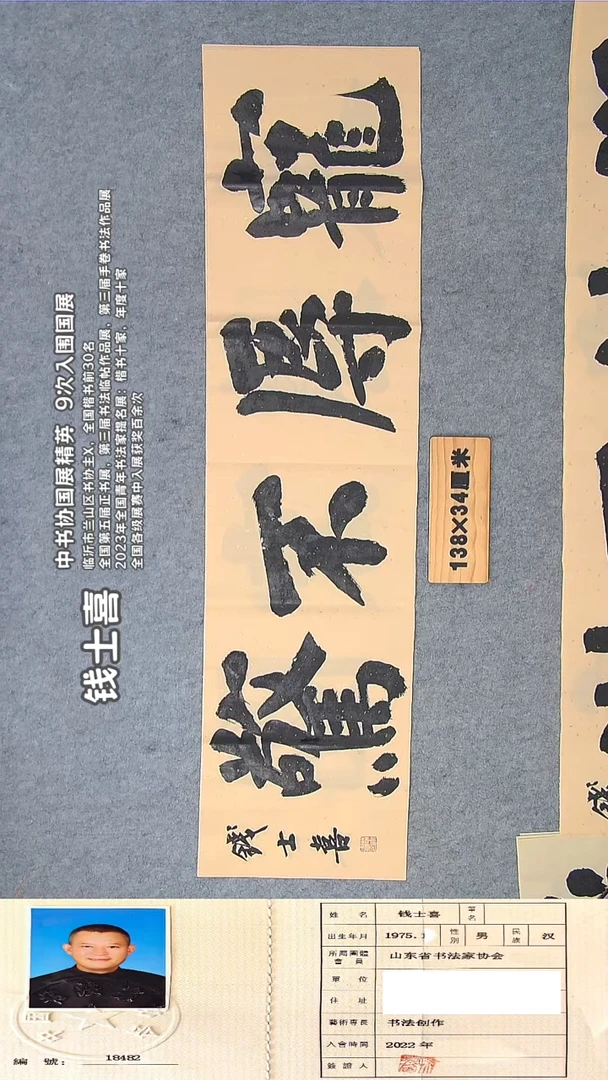 中书协国展精英 9次入围国展
临沂市兰山区书协主X、全国楷书前30名
全国第五届正书展、第三届书法临帖作品展、第三届手卷书法作品展
2023年全国青年书法家提名展：楷书十家，年度十家
全国各级展赛中入展获奖百余次
钱士喜
寵辱不驚
錢士喜
138×34厘米
姓名 钱士喜 筆名
出生年月 1975. 性別 男 民族 汉
所屬團體會員 山东省书法家协会
單位
住址
藝術專長 书法创作
入會時間 2022 年
簽證人
編號： 18482